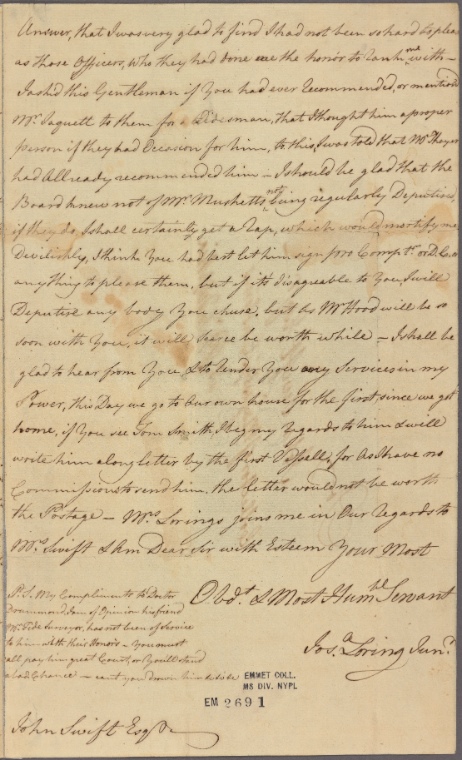 Answer, that I was very glad to find I had not been so hard to please
as those Officers, who they had done me the honor to rank me with —
I ask'd this Gentleman if You had ever Recommended, or mention'd
Mr. Paquett to them for a Tidesman, that I thought him a proper
person if they had Occasion for him, to this, I was told that Mr.
had Allready recommended him — I should be glad that the
Board knew not of Mr. Musketts not being regularly Deputised,
if they do, I shall certainly get a Rap, which would mortify me
Devilishly, I think You had best let him sign pro Compt.r or D. Co.
any thing to please them, but if its disagreable to You, I will
Deputise any body You chuse, but as Mr Hood will be so
soon with You, it will scarce be worth while — I shall be
glad to hear from You & to render You any Services in my
Power, this Day we go to our own house for the first since we got
home, if You see Tom Smith, I beg my regards to him & will
write him a long Letter by the first Vessell, for As I have no
Commissions to send him, the letter would not be worth
the Postage — Mrs. Lorings joins me in Our Regards to
Mrs. Swift & I Am Dear Sir with Esteem Your Most
Obd.t & Most Hum.ble Servant
Jos.a Loring Jun.r
P.S. My Compliments to Doctor
Drummond, I am of Opinion his friend
the Tide Surveyor, has not been of Service
to him with their Honors — You must
all pay him great Court, or You'll stand
a bad Chance — cant you drown him
EMMET COLL.
MS DIV. NYPL
EM 2691
John Swift Esqr